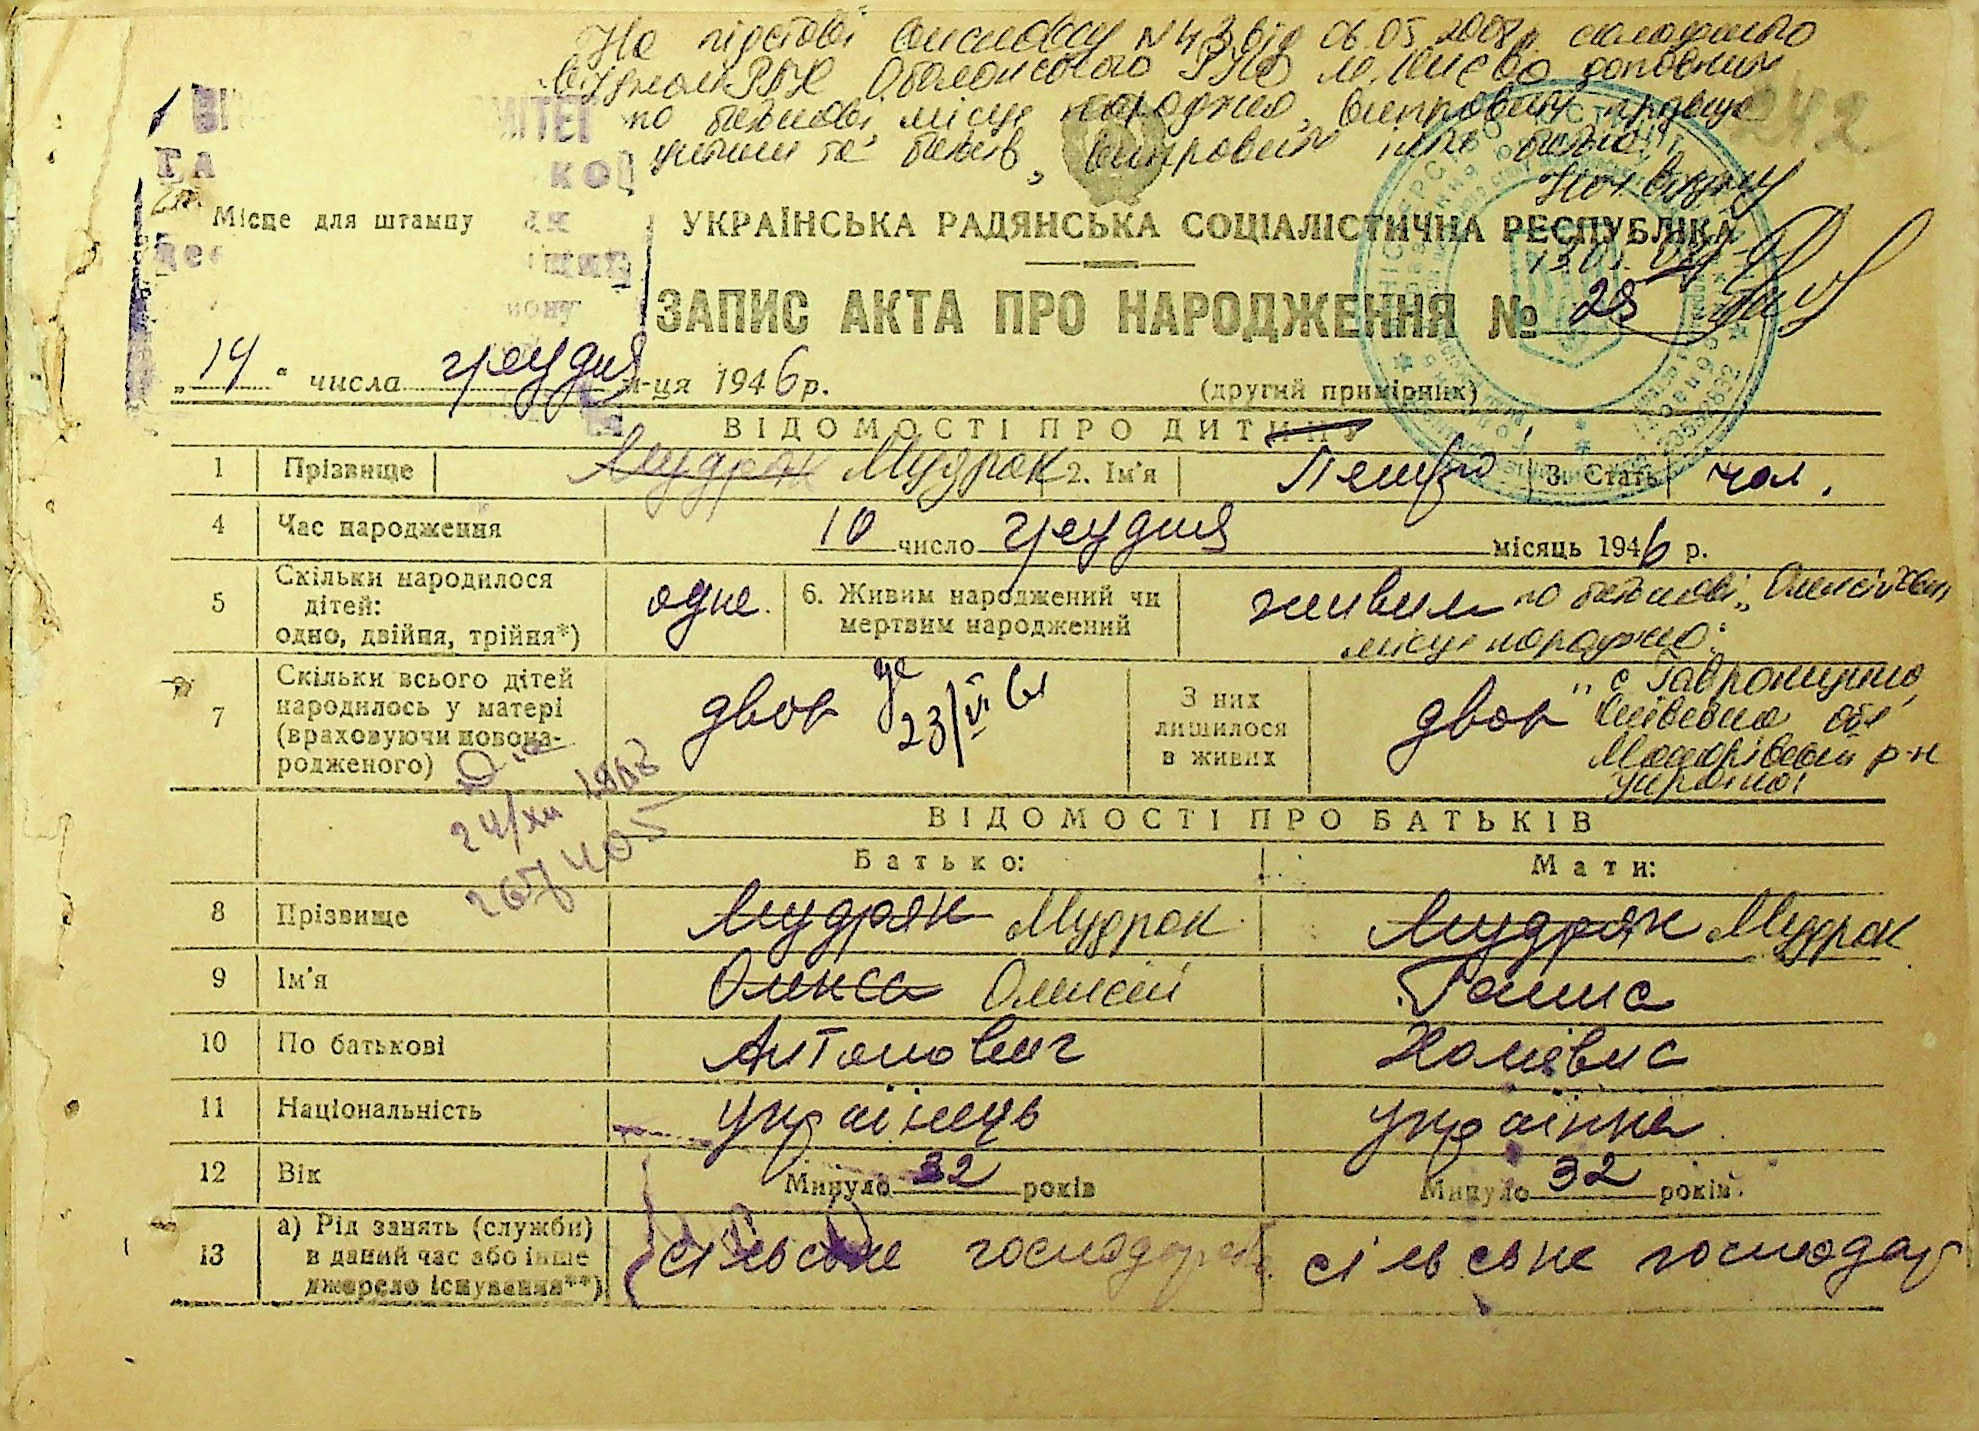 На підставі висновку №43 від 06.05.2008р. складеного
відділом РАЦС Оболонського РУЮ м. Києва доповнити
по батькові, місце народжен, виправити прізвище
дитини та батьків, виправити ім'я батька
242
Місце для штампу
УКРАЇНСЬКА РАДЯНСЬКА СОЦІАЛІСТИЧНА РЕСПУБЛІКА
ЗАПИС АКТА ПРО НАРОДЖЕННЯ № 25
„14“ числа грудня м-ця 1946 р.
(другий примірник)
ВІДОМОСТІ ПРО ДИТИНУ
1 Прізвище Мудряк Мудрак 2. Ім'я Петро 3. Стать чол.
4 Час народження 10 число грудня місяць 1946 р.
5 Скільки народилося дітей: одно, двійня, трійня*) одне. 6. Живим народжений чи мертвим народжений живим
по батькові „Олексійович
місце народжен:
7 Скільки всього дітей народилось у матері (враховуючи новонародженого) двоє 23/VI 61 З них лишилося в живих двоє
„с Гавронщина,
Київська обл
Макарівський р-н
Україна
24/XII 1968
267405
ВІДОМОСТІ ПРО БАТЬКІВ
Батько: Мати:
8 Прізвище Мудряк Мудрак Мудряк Мудрак
9 Ім'я Олекса Олексій Ганна
10 По батькові Антонович Хомівна
11 Національність українець українка
12 Вік Минуло 32 років Минуло 32 років
13 а) Рід занять (служби) в даний час або інше джерело існування**) сільське господарств сільське господар